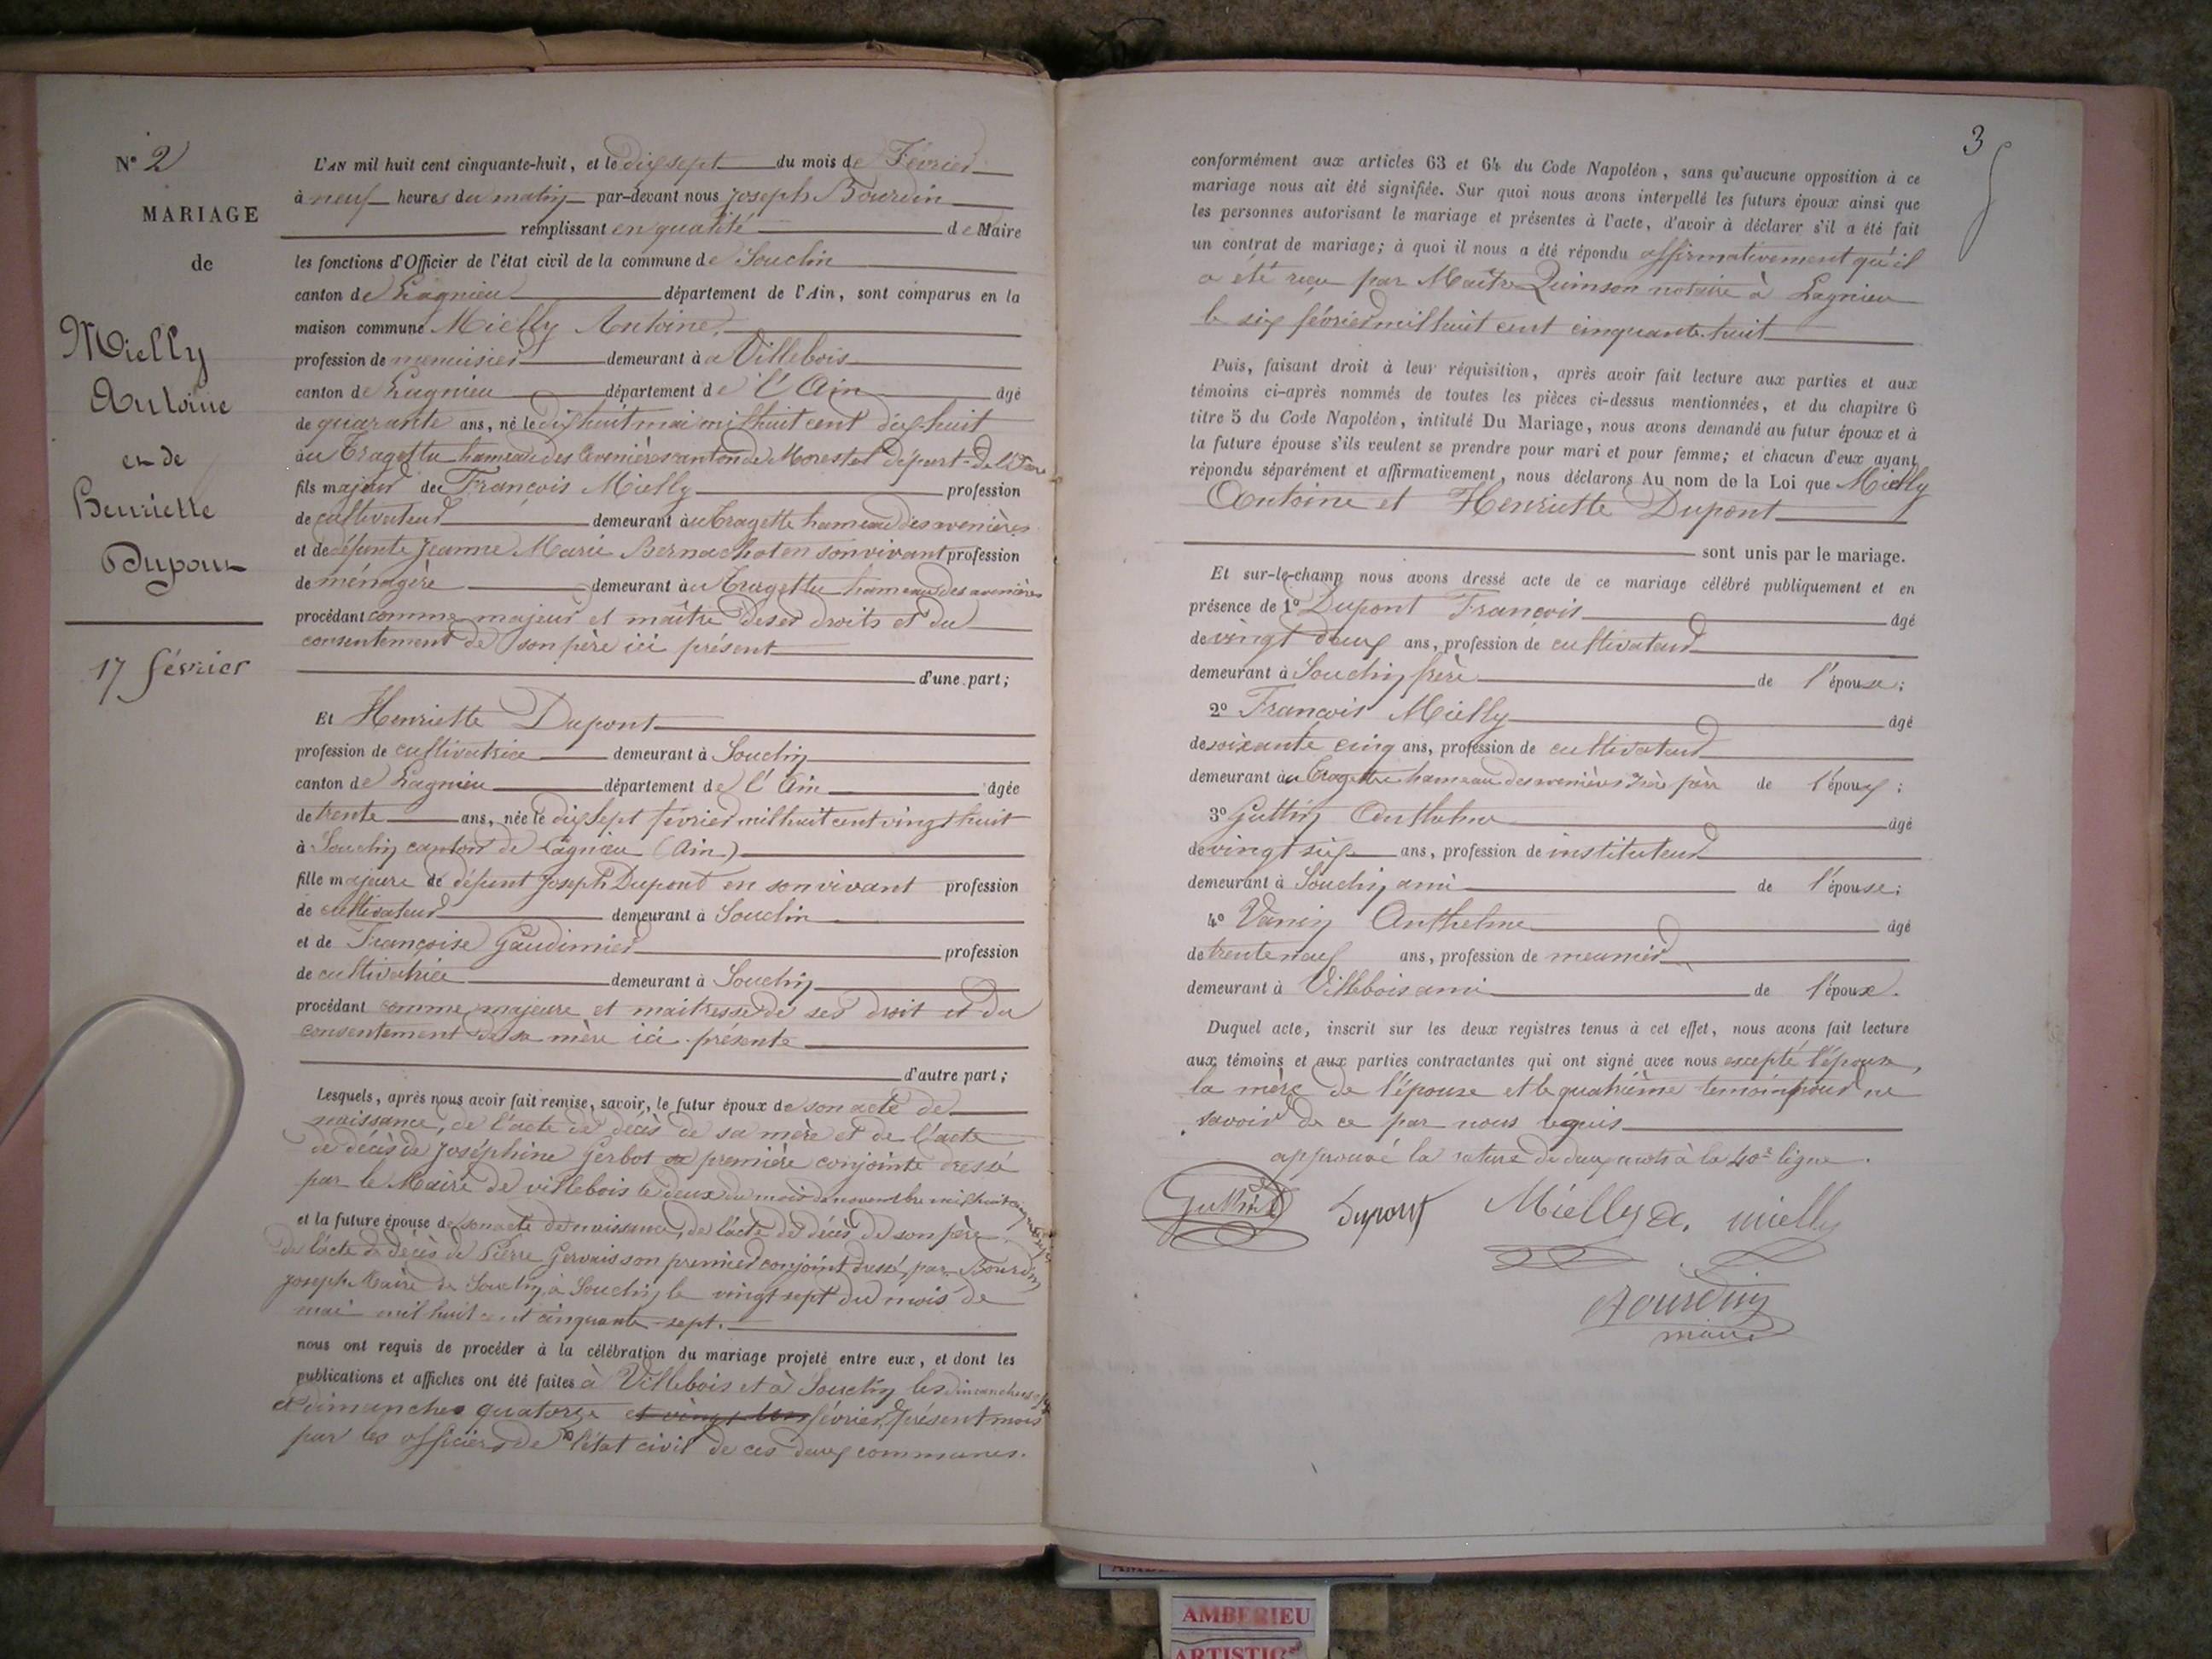 N° 2
MARIAGE
de
Mielly
Antoine
et de
Henriette
Dupont
17 février
L'AN mil huit cent cinquante-huit, et le dix sept du mois de Février
à neuf heures du matin par-devant nous Joseph Bourdin
remplissant en qualité de Maire
les fonctions d'Officier de l'état civil de la commune de Souclin
canton de Lagnieu département de l'Ain, sont comparus en la
maison commune Mielly Antoine
profession de menuisier demeurant à a Villebois
canton de Lagnieu département de l'Ain âgé
de quarante ans, né le dix huit mai mil huit cent dix-huit
au Tragettu hameau des avenières canton de Morestel départ. de l'Isère
fils majeur de François Mielly profession
de cultivateur demeurant au Tragette hameau des avenières
et de défunte Jeanne Marie Bernachot en son vivant profession
de ménagère demeurant au Tragettu hameau des avenières
procédant comme majeur et maître de ses droits et du
consentement de son père ici présent
d'une part;
Et Henriette Dupont
profession de cultivatrice demeurant à Souclin
canton de Lagnieu département de l'Ain âgée
de trente ans, née le dix sept février mil huit cent vingt huit
à Souclin canton de Lagnieu (Ain)
fille majeure de défunt Joseph Dupont en son vivant profession
de cultivateur demeurant à Souclin
et de Françoise Gaudimier profession
de cultivatrice demeurant à Souclin
procédant comme majeure et maitresse de ses droit et du
consentement de sa mère ici présente
d'autre part;
Lesquels, après nous avoir fait remise, savoir, le futur époux de son acte de
naissance, de l'acte de décès de sa mère et de l'acte
de décès de Joséphine Gerbot sa première conjointe dressé
par le Maire de villebois le deux du mois de novembre mil huit
et la future épouse de son acte de naissance, de l'acte de décès de son père
de l'acte de décès de Pierre Gervais son premier conjoint dressé, par Bourdin
Joseph Maire de Souclin, à Souclin le vingt sept du mois de
mai mil huit cent cinquante-sept.
nous ont requis de procéder à la célébration du mariage projeté entre eux, et dont les
publications et affiches ont été faites à Villebois et à Souclin les dimanches sept
et dimanche quatorze février, présent mois
par les officiers de l'état civil de ces deux communes.
3
conformément aux articles 63 et 64 du Code Napoléon, sans qu'aucune opposition à ce
mariage nous ait été signifiée. Sur quoi nous avons interpellé les futurs époux ainsi que
les personnes autorisant le mariage et présentes à l'acte, d'avoir à déclarer s'il a été fait
un contrat de mariage; à quoi il nous a été répondu affirmativement qu'il
a été reçu par Maître Quinson notaire à Lagnieu
le six février mil huit cent cinquante-huit
Puis, faisant droit à leur réquisition, après avoir fait lecture aux parties et aux
témoins ci-après nommés de toutes les pièces ci-dessus mentionnées, et du chapitre 6
titre 5 du Code Napoléon, intitulé Du Mariage, nous avons demandé au futur époux et à
la future épouse s'ils veulent se prendre pour mari et pour femme; et chacun d'eux ayant
répondu séparément et affirmativement, nous déclarons Au nom de la Loi que Mielly
Antoine et Henriette Dupont
sont unis par le mariage.
Et sur-le-champ nous avons dressé acte de ce mariage célébré publiquement et en
présence de 1° Dupont François âgé
de vingt deux ans, profession de cultivateur
demeurant à Souclin frère de l'épouse;
2° François Mielly âgé
de soixante cinq ans, profession de cultivateur
demeurant au Tragettu hameau des avenières père de l'époux;
3° Guttin Anthelme âgé
de vingt six ans, profession de instituteur
demeurant à Souclin ami de l'épouse;
4° Vanin Anthelme âgé
de trente neuf ans, profession de meunier
demeurant à Villebois ami de l'époux.
Duquel acte, inscrit sur les deux registres tenus à cet effet, nous avons fait lecture
aux témoins et aux parties contractantes qui ont signé avec nous excepté l'épouse,
la mère de l'épouse et le quatrième temoin pour ne
savoir de ce par nous requis
approuvé la rature de deux mots à la 40e ligne.
Guttin Dupont Mielly A. mielly
Bourdin
maire
AMBERIEU
ARTISTIC